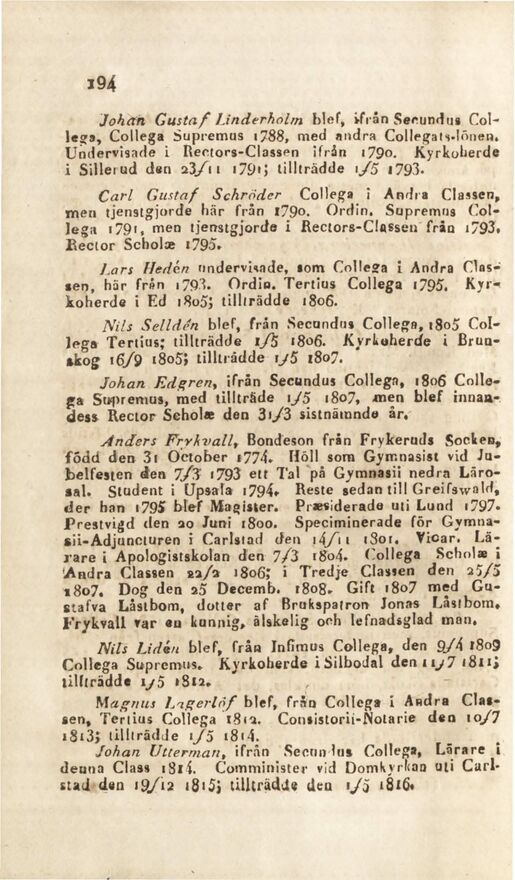 194
Johan Gustaf Linderholm blef, ifrån Secundus Col-
lega, Collega Supremus 1788, med andra Collegats-lönen.
Undervisade i Rectors-Classen ifrån 1790. Kyrkoherde
i Sillerud den 23/11 1791; tillträdde 1/5 1793.
Carl Gustaf Schröder Collega i Andra Classen,
men tjenstgjorde här från 1790. Ordin. Supremus Col-
lega 1791, men tjenstgjorde i Rectors-Classen från 1793.
Rector Scholæ 1795.
Lars Hedén undervisade, som Collega i Andra Clas-
sen, här från 1793. Ordin. Tertius Collega 1795. Kyr-
koherde i Ed 1805; tillträdde 1806.
Nils Selldén blef, från Secundus Collega, 1805 Col-
lega Tertius; tillträdde 1/5 1806. Kyrkoherde i Brun-
skog 16/9 1805; tillträdde 1/5 1807.
Johan Edgren, ifrån Secundus Collega, 1806 Colle-
ga Supremus, med tillträde 1/5 1807, men blef innan-
dess Rector Scholæ den 31/3 sistnämnde år.
Anders Frykvall, Bondeson från Frykeruds Socken,
född den 31 October 1774. Höll som Gymnasist vid Ju-
belfesten den 7/3 1793 ett Tal på Gymnasii nedra Läro-
sal. Student i Upsala 1794. Reste sedan till Greifswald,
der han 1795 blef Magister. Præsiderade uti Lund 1797.
Prestvigd den 20 Juni 1800. Speciminerade för Gymna-
sii-Adjuncturen i Carlstad den 14/11 1801. Vicar. Lä-
rare i Apologistskolan den 7/3 1804. Collega Scholæ i
Andra Classen 22/2 1806; i Tredje Classen den 25/5
1807. Dog den 25 Decemb. 1808. Gift 1807 med Gu-
stafva Låstbom, dotter af Brukspatron Jonas Låstbom.
Frykvall var en kunnig, älskelig och lefnadsglad man.
Nils Lidén blef, från Infimus Collega, den 9/4 1809
Collega Supremus. Kyrkoherde i Silbodal den 11/7 1811;
tillträdde 1/5 1812.
Magnus Lagerlöf blef, från Collega i Andra Clas-
sen, Tertius Collega 1812. Consistorii-Notarie den 10/7
1813; tillträdde 1/5 1814.
Johan Utterman, ifrån Secundus Collega, Lärare i
denna Class 1814. Comminister vid Domkyrkan uti Carl-
stad den 19/12 1815; tillträdde den 1/5 1816.